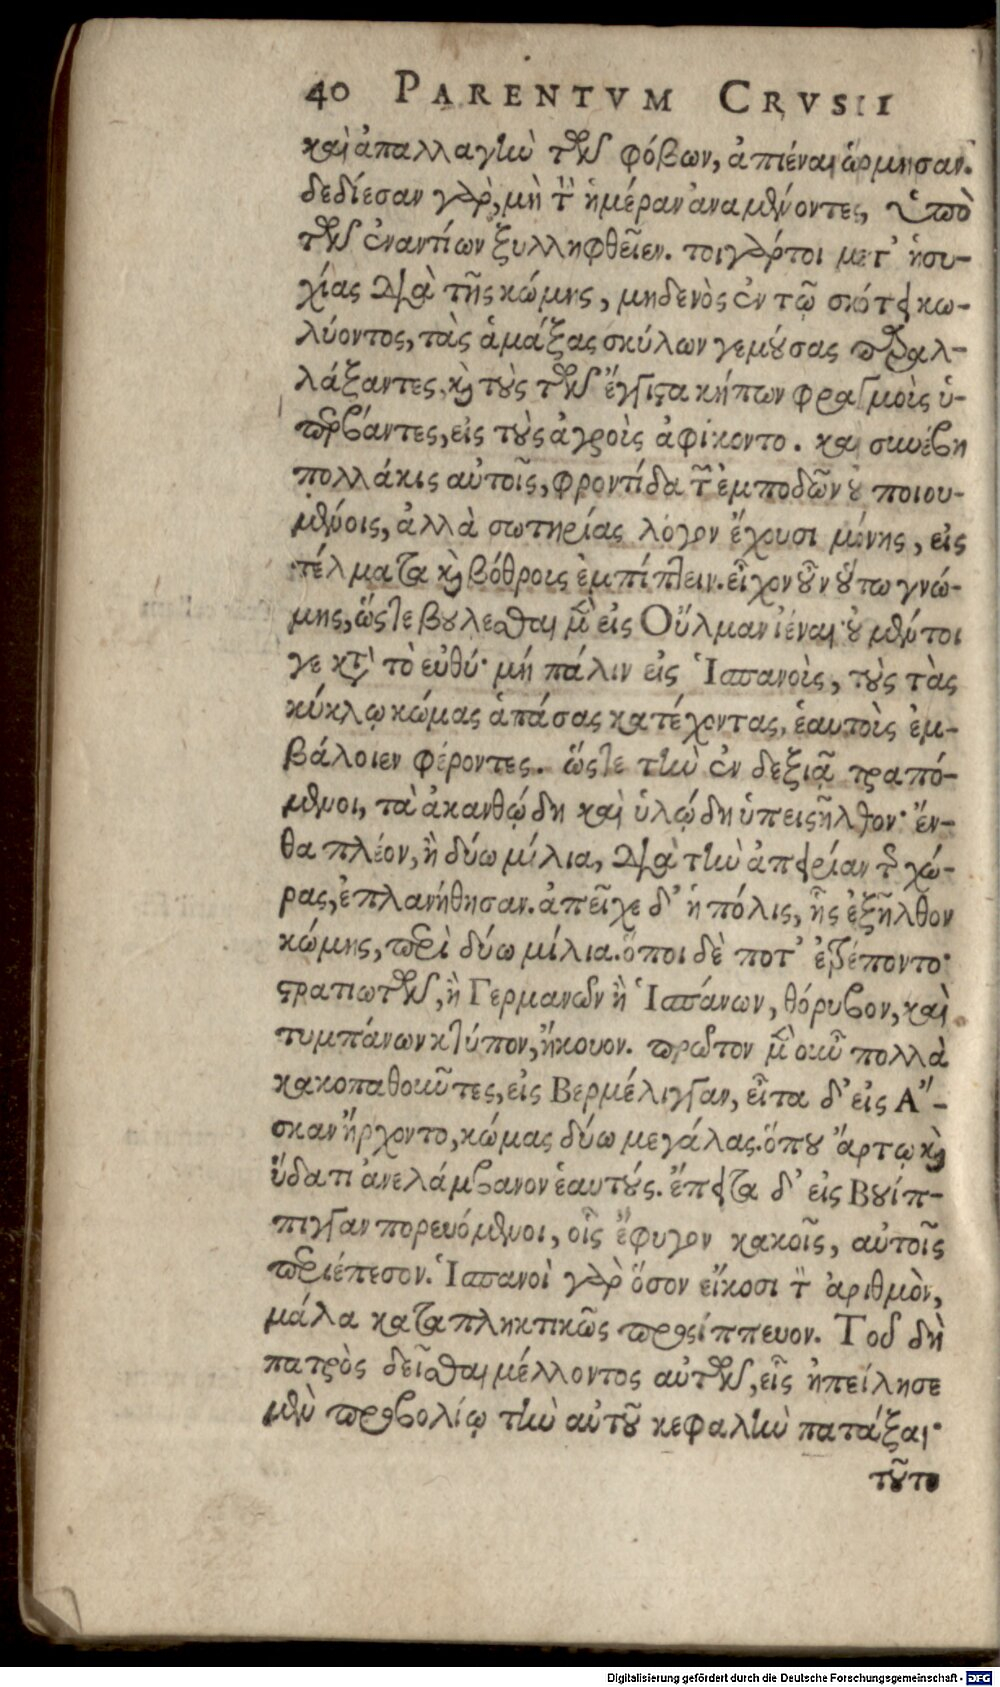 40 PARENTVM CRVSII
καὶ ἀπαλλαγὴν τῶν φόβων, ἀπιέναι ὥρμησαν.
δεδίεσαν γὰρ, μὴ τὴν ἡμέραν ἀναμένοντες, ὑπὸ
τῶν ἐναντίων ξυλληφθεῖεν. τοιγάρτοι μεθ' ἡσυ-
χίας διὰ τῆς κώμης, μηδενὸς ἐν τῷ σκότει κω-
λύοντος, τὰς ἁμάξας σκύλων γεμούσας παραλ-
λάξαντες, καὶ τοὺς τῶν ἔγγιστα κήπων φραγμοὺς ὑ-
περβάντες, εἰς τοὺς ἀγροὺς ἀφίκοντο. καὶ συνέβη
πολλάκις αὐτοῖς, φροντίδα τῶν ἐμποδῶν οὐ ποιου-
μένοις, ἀλλὰ σωτηρίας λόγον ἔχουσι μόνης, εἰς
τέλματα καὶ βόθρους ἐμπίπτειν. εἶχον οὖν οὕτω γνώ-
μης, ὥστε βούλεσθαι μὲν εἰς Οὔλμαν ἰέναι· οὐ μέντοι
γε κατὰ τὸ εὐθύ· μή πάλιν εἰς Ἱσπανοὺς, τοὺς τὰς
κύκλῳ κώμας ἁπάσας κατέχοντας, ἑαυτοὺς ἐμ-
βάλοιεν φέροντες. ὥστε τὴν ἐν δεξιᾷ τραπό-
μενοι, τὰ ἀκανθώδη καὶ ὑλώδη ὑπεισῆλθον· ἔν-
θα πλέον, ἢ δύω μίλια, διὰ τὴν ἀπειρίαν τῆς χώ-
ρας, ἐπλανήθησαν. ἀπεῖχε δ' ἡ πόλις, ἧς ἐξῆλθον
κώμης, περὶ δύω μίλια. ὅποι δὲ ποτ' ἐτρέποντο·
στρατιωτῶν, ἢ Γερμανῶν ἢ Ἱσπάνων, θόρυβον, καὶ
τυμπάνων κτύπον, ἤκουον. πρῶτον μὲν οὖν πολλὰ
κακοπαθοῦντες, εἰς Βερμέλιγγαν, εἶτα δ' εἰς Ἄ-
σκαν ἤρχοντο, κώμας δύω μεγάλας. ὅπου ἄρτῳ καὶ
ὕδατι ἀνελάμβανον ἑαυτούς. ἔπειτα δ' εἰς Βουίπ-
πιγγαν πορευόμενοι, οἷς ἔφυγον κακοῖς, αὐτοῖς
περιέπεσον. Ἱσπανοὶ γὰρ ὅσον εἴκοσι τὸν ἀριθμὸν,
μάλα καταπληκτικῶς προσίππευον. Τοῦ δὴ
πατρὸς δεῖσθαι μέλλοντος αὐτῶν, εἷς ἠπείλησε
μὲν προβολίῳ τὴν αὐτοῦ κεφαλὴν πατάξαι·
τοῦτο
Digitalisierung gefördert durch die Deutsche Forschungsgemeinschaft - DFG